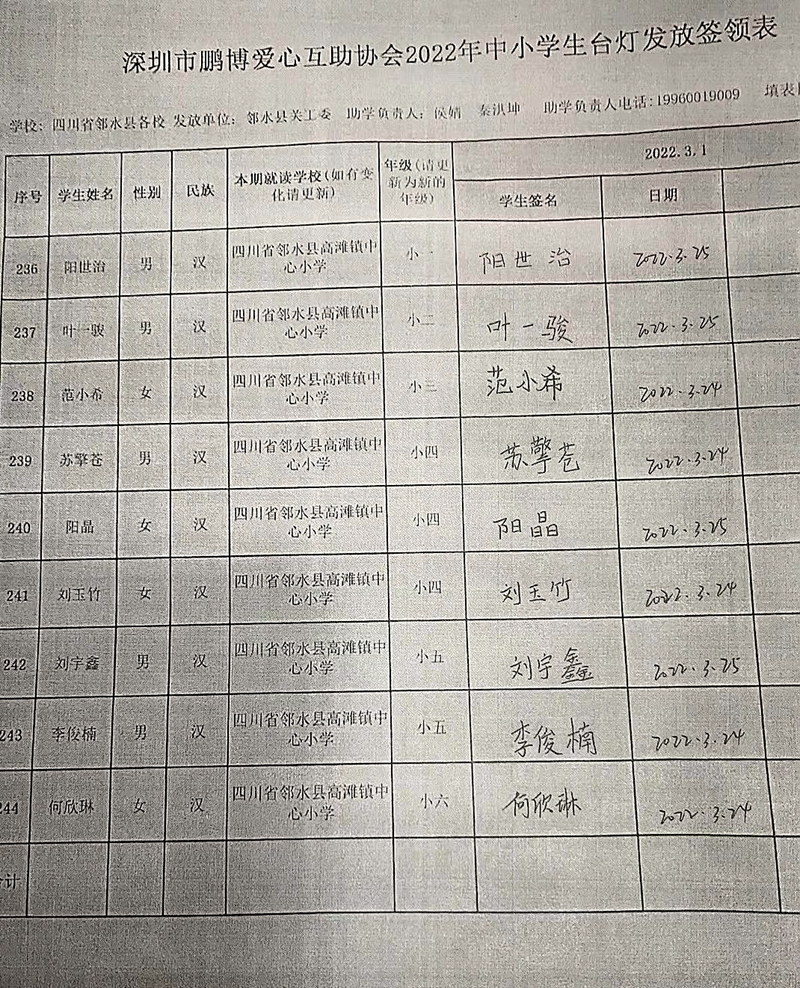 深圳市鹏博爱心互助协会2022年中小学生台灯发放签领表
学校：四川省邻水县各校 发放单位：邻水县关工委 助学负责人：侯婧 秦洪坤 助学负责人电话:19960019009 填表
序号 学生姓名 性别 民族 本期就读学校(如有变化请更新) 年级(请更新为新的年级) 2022.3.1
学生签名 日期
236 阳世治 男 汉 四川省邻水县高滩镇中心小学 小一 阳世治 2022.3.25
237 叶一骏 男 汉 四川省邻水县高滩镇中心小学 小二 叶一骏 2022.3.25
238 范小希 女 汉 四川省邻水县高滩镇中心小学 小三 范小希 2022.3.24
239 苏擎苍 男 汉 四川省邻水县高滩镇中心小学 小四 苏擎苍 2022.3.24
240 阳晶 女 汉 四川省邻水县高滩镇中心小学 小四 阳晶 2022.3.25
241 刘玉竹 女 汉 四川省邻水县高滩镇中心小学 小四 刘玉竹 2022.3.24
242 刘宇鑫 男 汉 四川省邻水县高滩镇中心小学 小五 刘宇鑫 2022.3.25
243 李俊楠 男 汉 四川省邻水县高滩镇中心小学 小五 李俊楠 2022.3.24
244 何欣琳 女 汉 四川省邻水县高滩镇中心小学 小六 何欣琳 2022.3.24
计